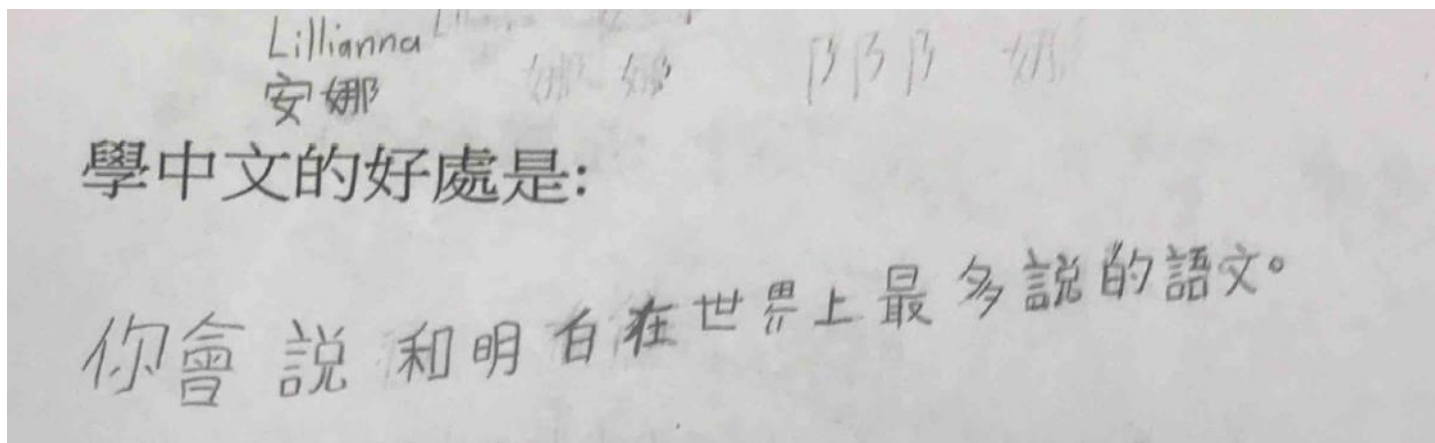 Lillianna
安娜
娜 娜 阝阝阝
學中文的好處是:
你會説和明白在世界上最多説的語文。